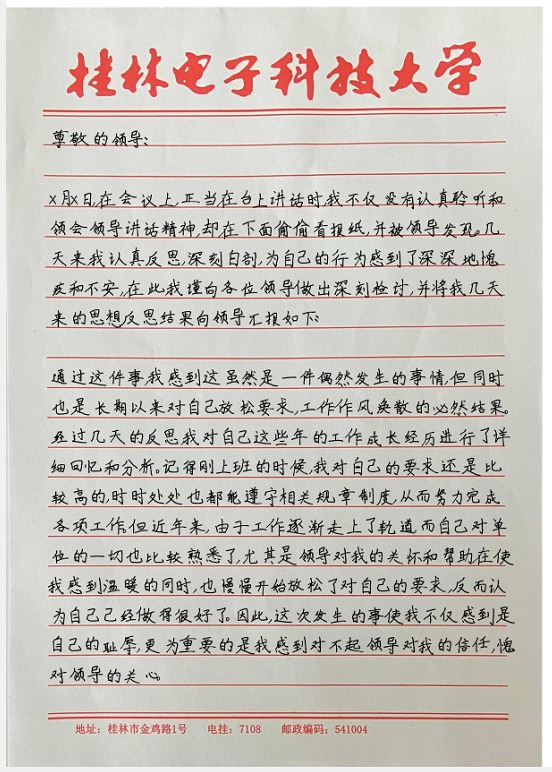 桂林电子科技大学
尊敬的领导:
x月x日,在会议上,正当在台上讲话时,我不仅没有认真聆听和
领会领导讲话精神,却在下面偷偷看报纸,并被领导发现。几
天来我认真反思,深刻自剖,为自己的行为感到了深深地愧
疚和不安,在此我谨向各位领导做出深刻检讨,并将我几天
来的思想反思结果向领导汇报如下:
通过这件事,我感到这虽然是一件偶然发生的事情,但同时
也是长期以来对自己放松要求,工作作风涣散的必然结果。
经过几天的反思我对自己这些年的工作成长经历进行了详
细回忆和分析。记得刚上班的时候,我对自己的要求还是比
较高的,时时处处也都能遵守相关规章制度,从而努力完成
各项工作。但近年来,由于工作逐渐走上了轨道,而自己对单
位的一切也比较熟悉了,尤其是领导对我的关怀和帮助在使
我感到温暖的同时,也慢慢开始放松了对自己的要求,反而认
为自己已经做得很好了。因此,这次发生的事使我不仅感到是
自己的耻辱,更为重要的是我感到对不起领导对我的信任,愧
对领导的关心。
地址:桂林市金鸡路1号 电挂:7108 邮政编码:541004